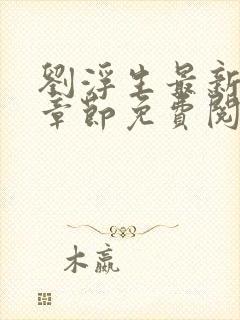 劉浮生最新
章節免費閱
木嬴